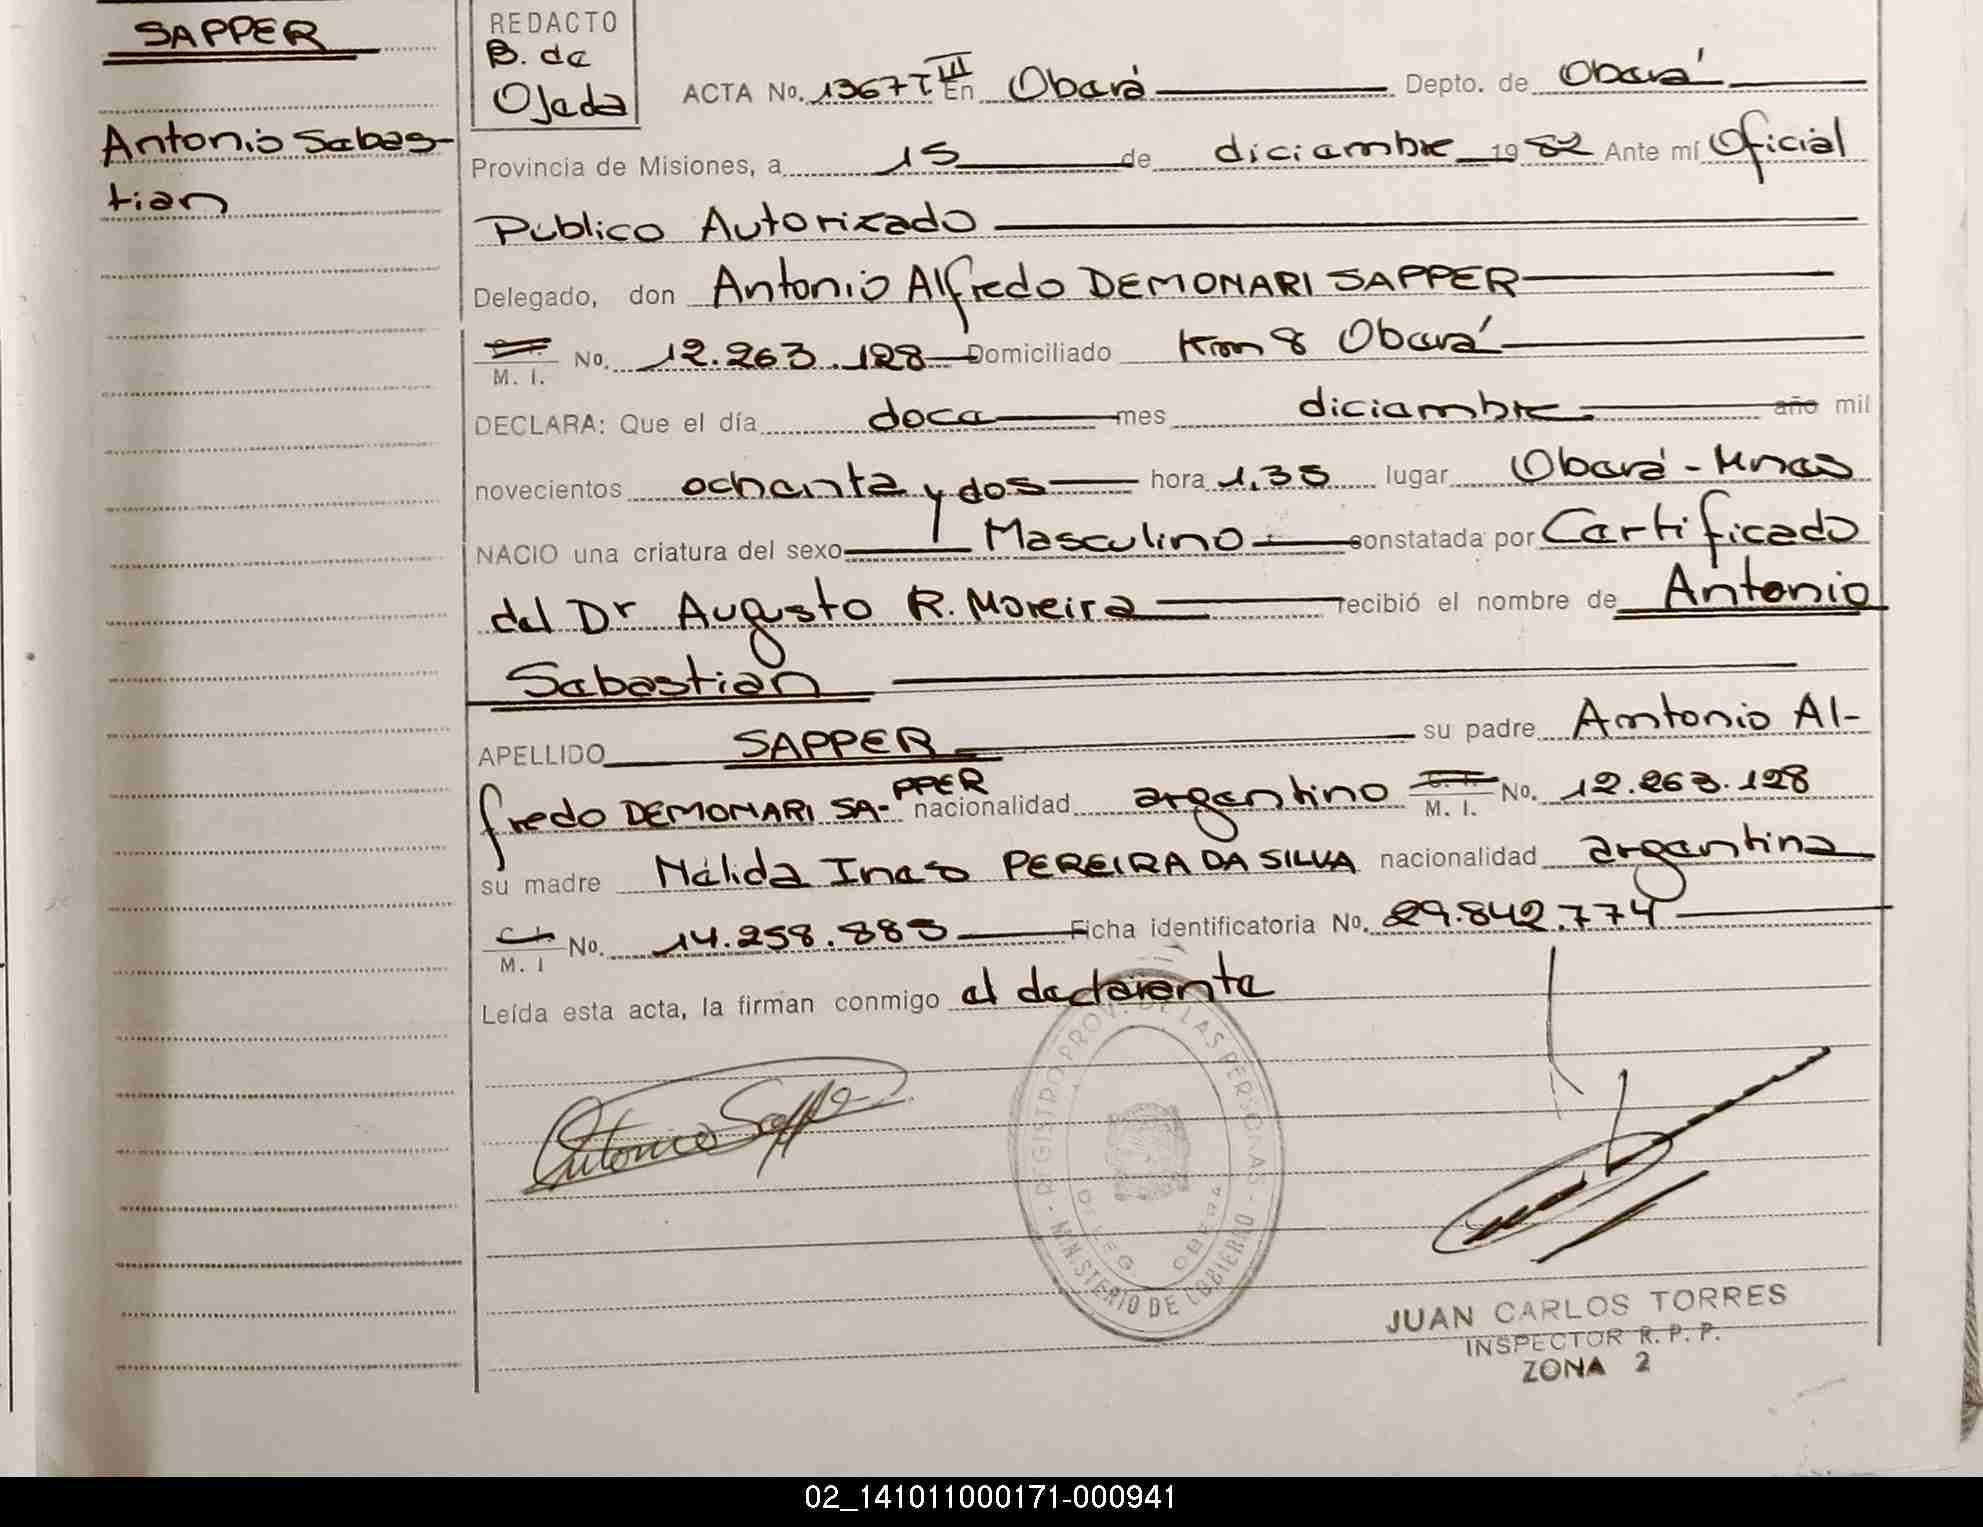 SAPPER
Antonio Sebas-
tian
REDACTO
B. de
Ojeda
ACTA No. 1367 T III En Oberá Depto. de Oberá
Provincia de Misiones, a 15 de diciembre 1982 Ante mí Oficial
Publico Autorizado
Delegado, don Antonio Alfredo DEMONARI SAPPER
M. I. No. 12.263.128 Domiciliado Km 8 Oberá
DECLARA: Que el día doce mes diciembre año mil
novecientos ochenta y dos hora 1,35 lugar Oberá - Mnes
NACIO una criatura del sexo Masculino constatada por Certificado
del Dr Augusto R. Moreira recibió el nombre de Antonio
Sebastian
APELLIDO SAPPER su padre Antonio Al-
fredo DEMONARI SA-PPER nacionalidad argentino C. I. M. I. No. 12.263.128
su madre Nélida Ines PEREIRA DA SILVA nacionalidad argentina
C. I. M. I No. 14.258.885 Ficha identificatoria No. 29.842.774
Leída esta acta, la firman conmigo el declarante
Antonio Sapper
REGISTRO PROV. DE LAS PERSONAS
DELEG OBERA
MINISTERIO DE GOBIERNO
JUAN CARLOS TORRES
INSPECTOR R. P. P.
ZONA 2
02_141011000171-000941